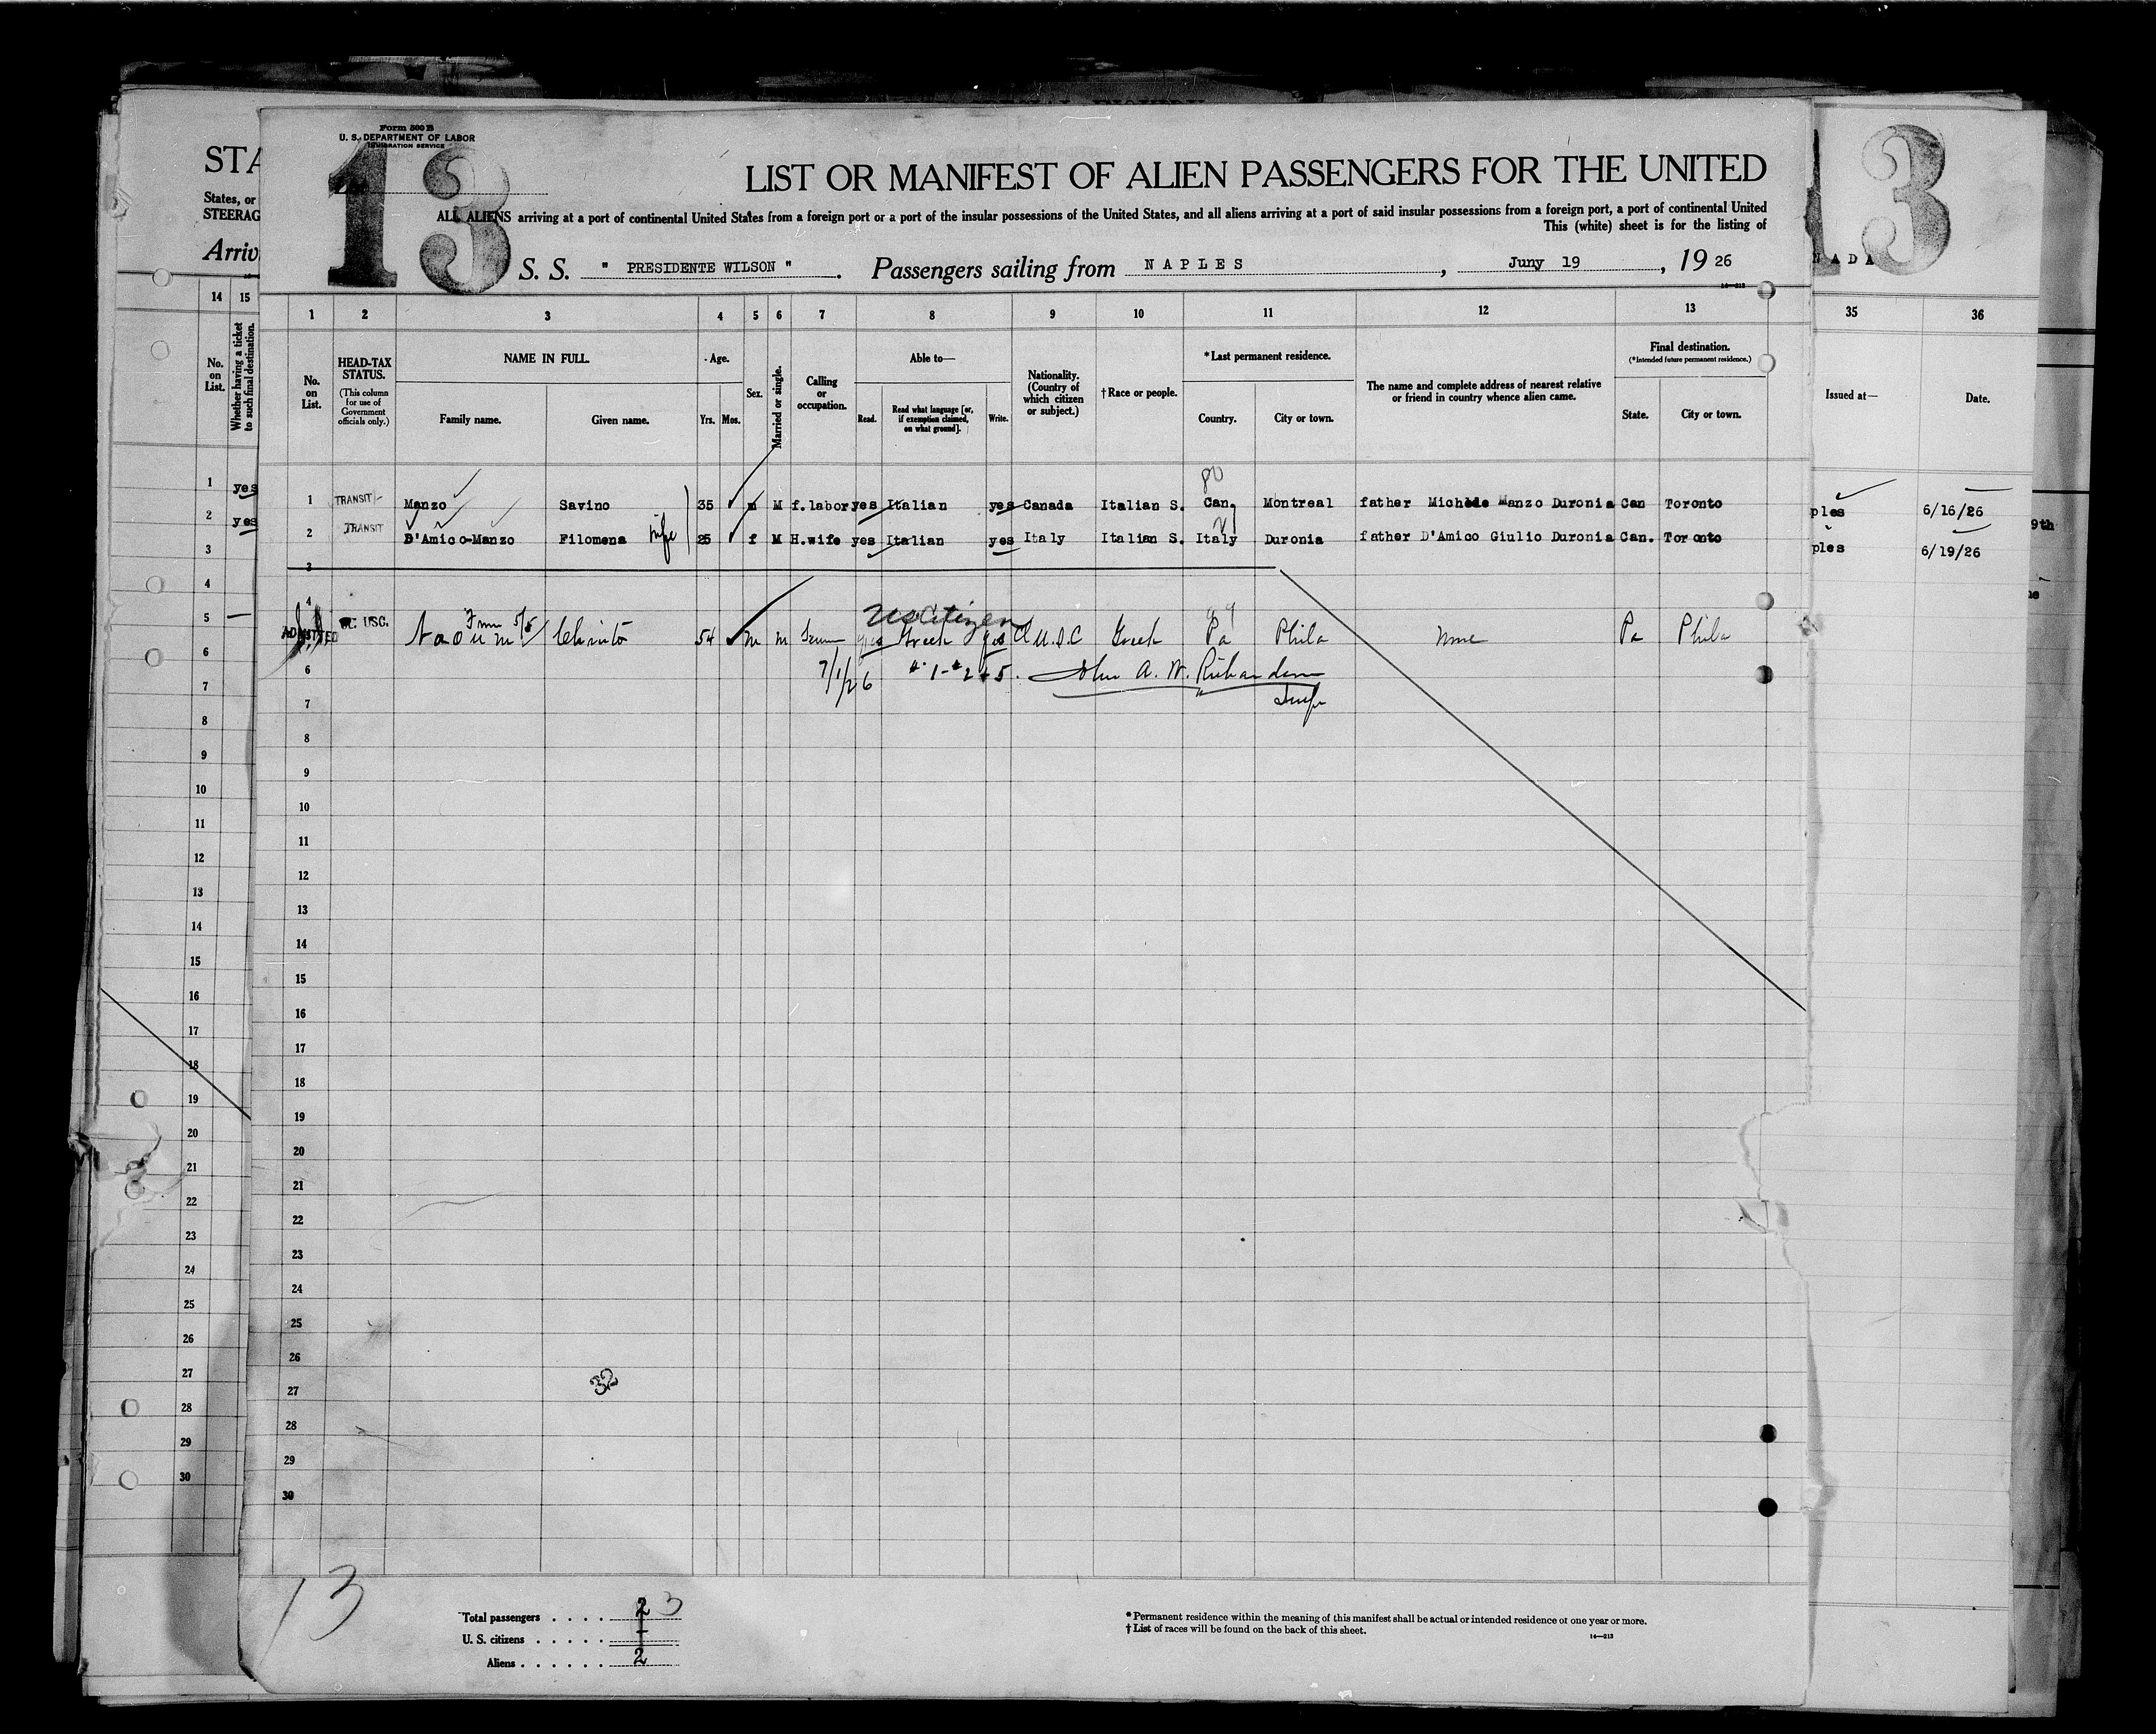 Form 500 B
U. S. DEPARTMENT OF LABOR
IMMIGRATION SERVICE
13
LIST OR MANIFEST OF ALIEN PASSENGERS FOR THE UNITED
ALL ALIENS arriving at a port of continental United States from a foreign port or a port of the insular possessions of the United States, and all aliens arriving at a port of said insular possessions from a foreign port, a port of continental United
This (white) sheet is for the listing of
S. S. " PRESIDENTE WILSON " . Passengers sailing from NAPLES , Juny 19 , 19 26
14—213
1 2 3 4 5 6 7 8 9 10 11 12 13
No. on List.
HEAD-TAX STATUS.
(This column for use of Government officials only.)
NAME IN FULL.
Family name. Given name.
Age.
Yrs. Mos.
Sex.
Married or single.
Calling or occupation.
Able to—
Read. Read what language [or, if exemption claimed, on what ground]. Write.
Nationality. (Country of which citizen or subject.)
†Race or people.
*Last permanent residence.
Country. City or town.
The name and complete address of nearest relative or friend in country whence alien came.
Final destination.
(*Intended future permanent residence.)
State. City or town.
80
1 TRANSIT Manzo Savino 35 m M f.labor yes Italian yes Canada Italian S. Can. Montreal father Michele Manzo Duronia Can Toronto
2 TRANSIT D'Amico-Manzo Filomena wife 25 f M H.wife yes Italian yes Italy Italian S. Italy Duronia father D'Amico Giulio Duronia Can. Toronto
3
4
US Citizen
ADMITTED USC. Naoum Christo 54 m m yes Greek yes U.S.C Greek Pa Phila None Pa Phila
6 7/1/26 #1-#2+5. John A. W. Richardson
7 Insp
8
9
10
11
12
13
14
15
16
17
18
19
20
21
22
23
24
25
26
27
32
28
29
30
13
Total passengers . . . . 2 3
U. S. citizens . . . . . 1
Aliens . . . . . . 2
* Permanent residence within the meaning of this manifest shall be actual or intended residence of one year or more.
† List of races will be found on the back of this sheet.
14—213
STA
States, or
STEERAG
Arriv
14 15
No. on List.
Whether having a ticket to such final destination.
1 yes
2 yes
3
4
5 —
6
7
8
9
10
11
12
13
14
15
16
17
18
19
20
21
22
23
24
25
26
27
28
29
30
13
NADA
35 36
Issued at— Date.
ples 6/16/26
9th
ples 6/19/26